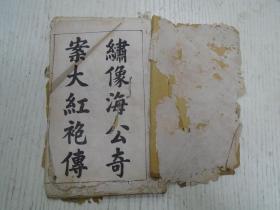 繡像海公奇
案大紅袍傳